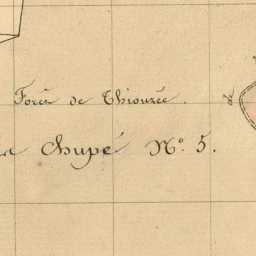 Forêt de Thiourée.
de
Chupé No. 5.